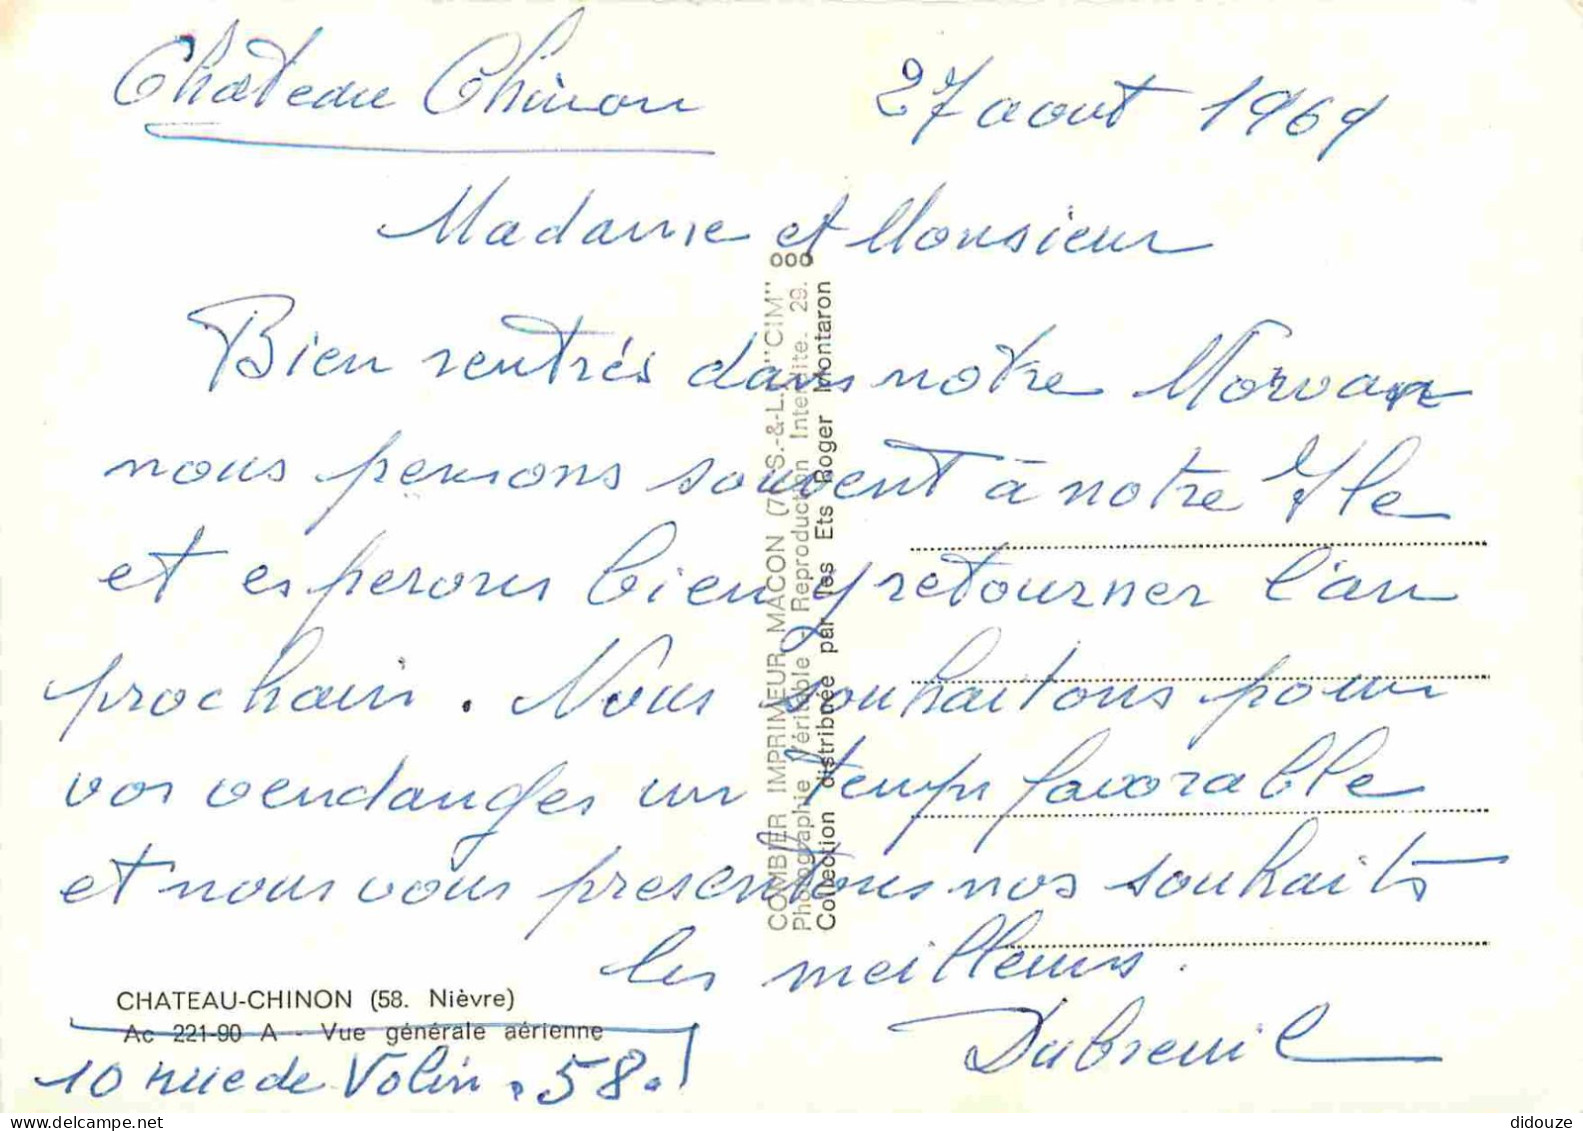 Chateau Chinon 27 aout 1969
Madame et Monsieur
Bien rentrés dans notre Morvan
nous pensons souvent à notre Ile
et esperons bien y retourner l'an
prochain. Nous souhaitons pour
vos vendanges un temps favorable
et nous vous presentons nos souhaits
les meilleurs.
Dubreuil
CHATEAU-CHINON (58. Nièvre)
Ac 221-90 A - Vue générale aérienne
10 rue de Volin. 58.
COMBIER IMPRIMEUR MACON (71 S.-&-L.) "CIM"
Photographie Véritable - Reproduction Interdite. 29.
Collection distribuée par les Ets Roger Montaron
didouze